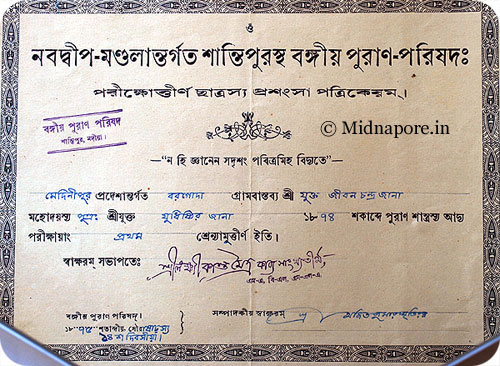 ওঁ
নবদ্বীপ-মণ্ডলান্তর্গত শান্তিপুরস্থ বঙ্গীয় পুরাণ-পরিষদঃ
পরীক্ষোত্তীর্ণ ছাত্রস্য প্রশংসা পত্রিকেয়ম্।
বঙ্গীয় পুরাণ পরিষদ
শান্তিপুর, নদীয়া।
© Midnapore.in
—"ন হি জ্ঞানেন সদৃশং পবিত্রমিহ বিদ্যতে"—
মেদিনীপুর প্রদেশান্তর্গত বরগোদা গ্রামবাস্তব্য শ্রী যুক্ত জীবন চন্দ্র জানা
মহোদয়স্য পুত্রঃ শ্রীযুক্ত যুধিষ্ঠির জানা ১৮৭৪ শকাব্দে পুরাণ শাস্ত্রস্য আদ্য
পরীক্ষায়াং প্রথম শ্রেণ্যামুত্তীর্ণ ইতি।
স্বাক্ষরম্ সভাপতেঃ
এম-এ, বি-এল,
বঙ্গীয় পুরাণ পরিষদ্।
সম্পাদকীয় স্বাক্ষরম্
১৮৭৫ শতাব্দীয়